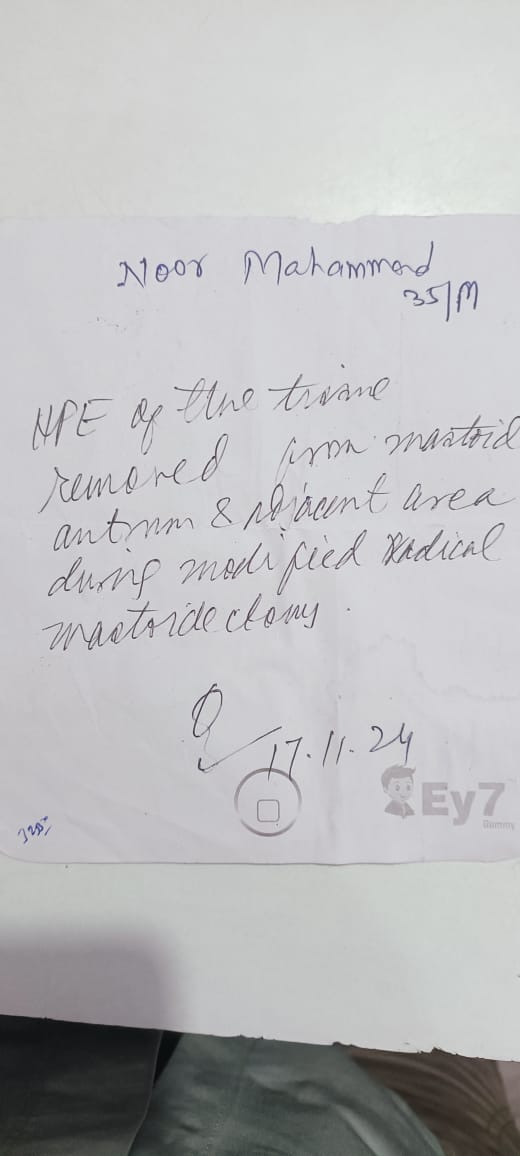 Noor Mahammad
35/M
HPE of the tissue
removed from mastoid
antrum & adjacent area
during modified Radical
mastoidectomy.
17.11.24
Ey7
Gummy